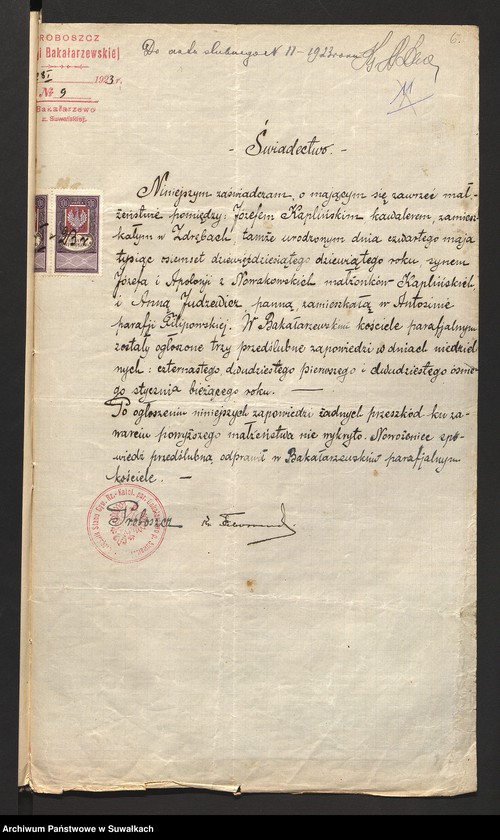 PROBOSZCZ
Bakałarzewskiej
1923 r.
№ 9
Bakałarzewo
z. Suwalskiej.
Do aktu ślubnego N 11 - 1923 roku
6.
- Świadectwo. -
Niniejszym zaświadczam, o mającym się zawrzeć mał-
żeństwie pomiędzy: Józefem Kaplińskim kawalerem, zamiesz-
kałym w Zdrębach, tamże urodzonym dnia czwartego maja
tysiąc osiemset dziewięćdziesiątego dziewiątego roku, synem
Józefa i Apolonji z Nowakowskich małżonków Kaplińskich
i Anną Judzewicz panną, zamieszkałą w Antosinie
parafji Filipowskiej. W Bakałarzewskim kościele parafjalnym
zostały ogłoszone trzy przedślubne zapowiedzi w dniach niedziel-
nych: czternastego, dwudziestego pierwszego i dwudziestego ósme-
go stycznia bieżącego roku. —
Po ogłoszeniu niniejszych zapowiedzi żadnych przeszkód ku za-
warciu powyższego małżeństwa nie wykryto. Nowożeniec spo-
wiedź przedślubną odprawił w Bakałarzewskim parafjalnym
kościele. —
Proboszcz
Archiwum Państwowe w Suwałkach